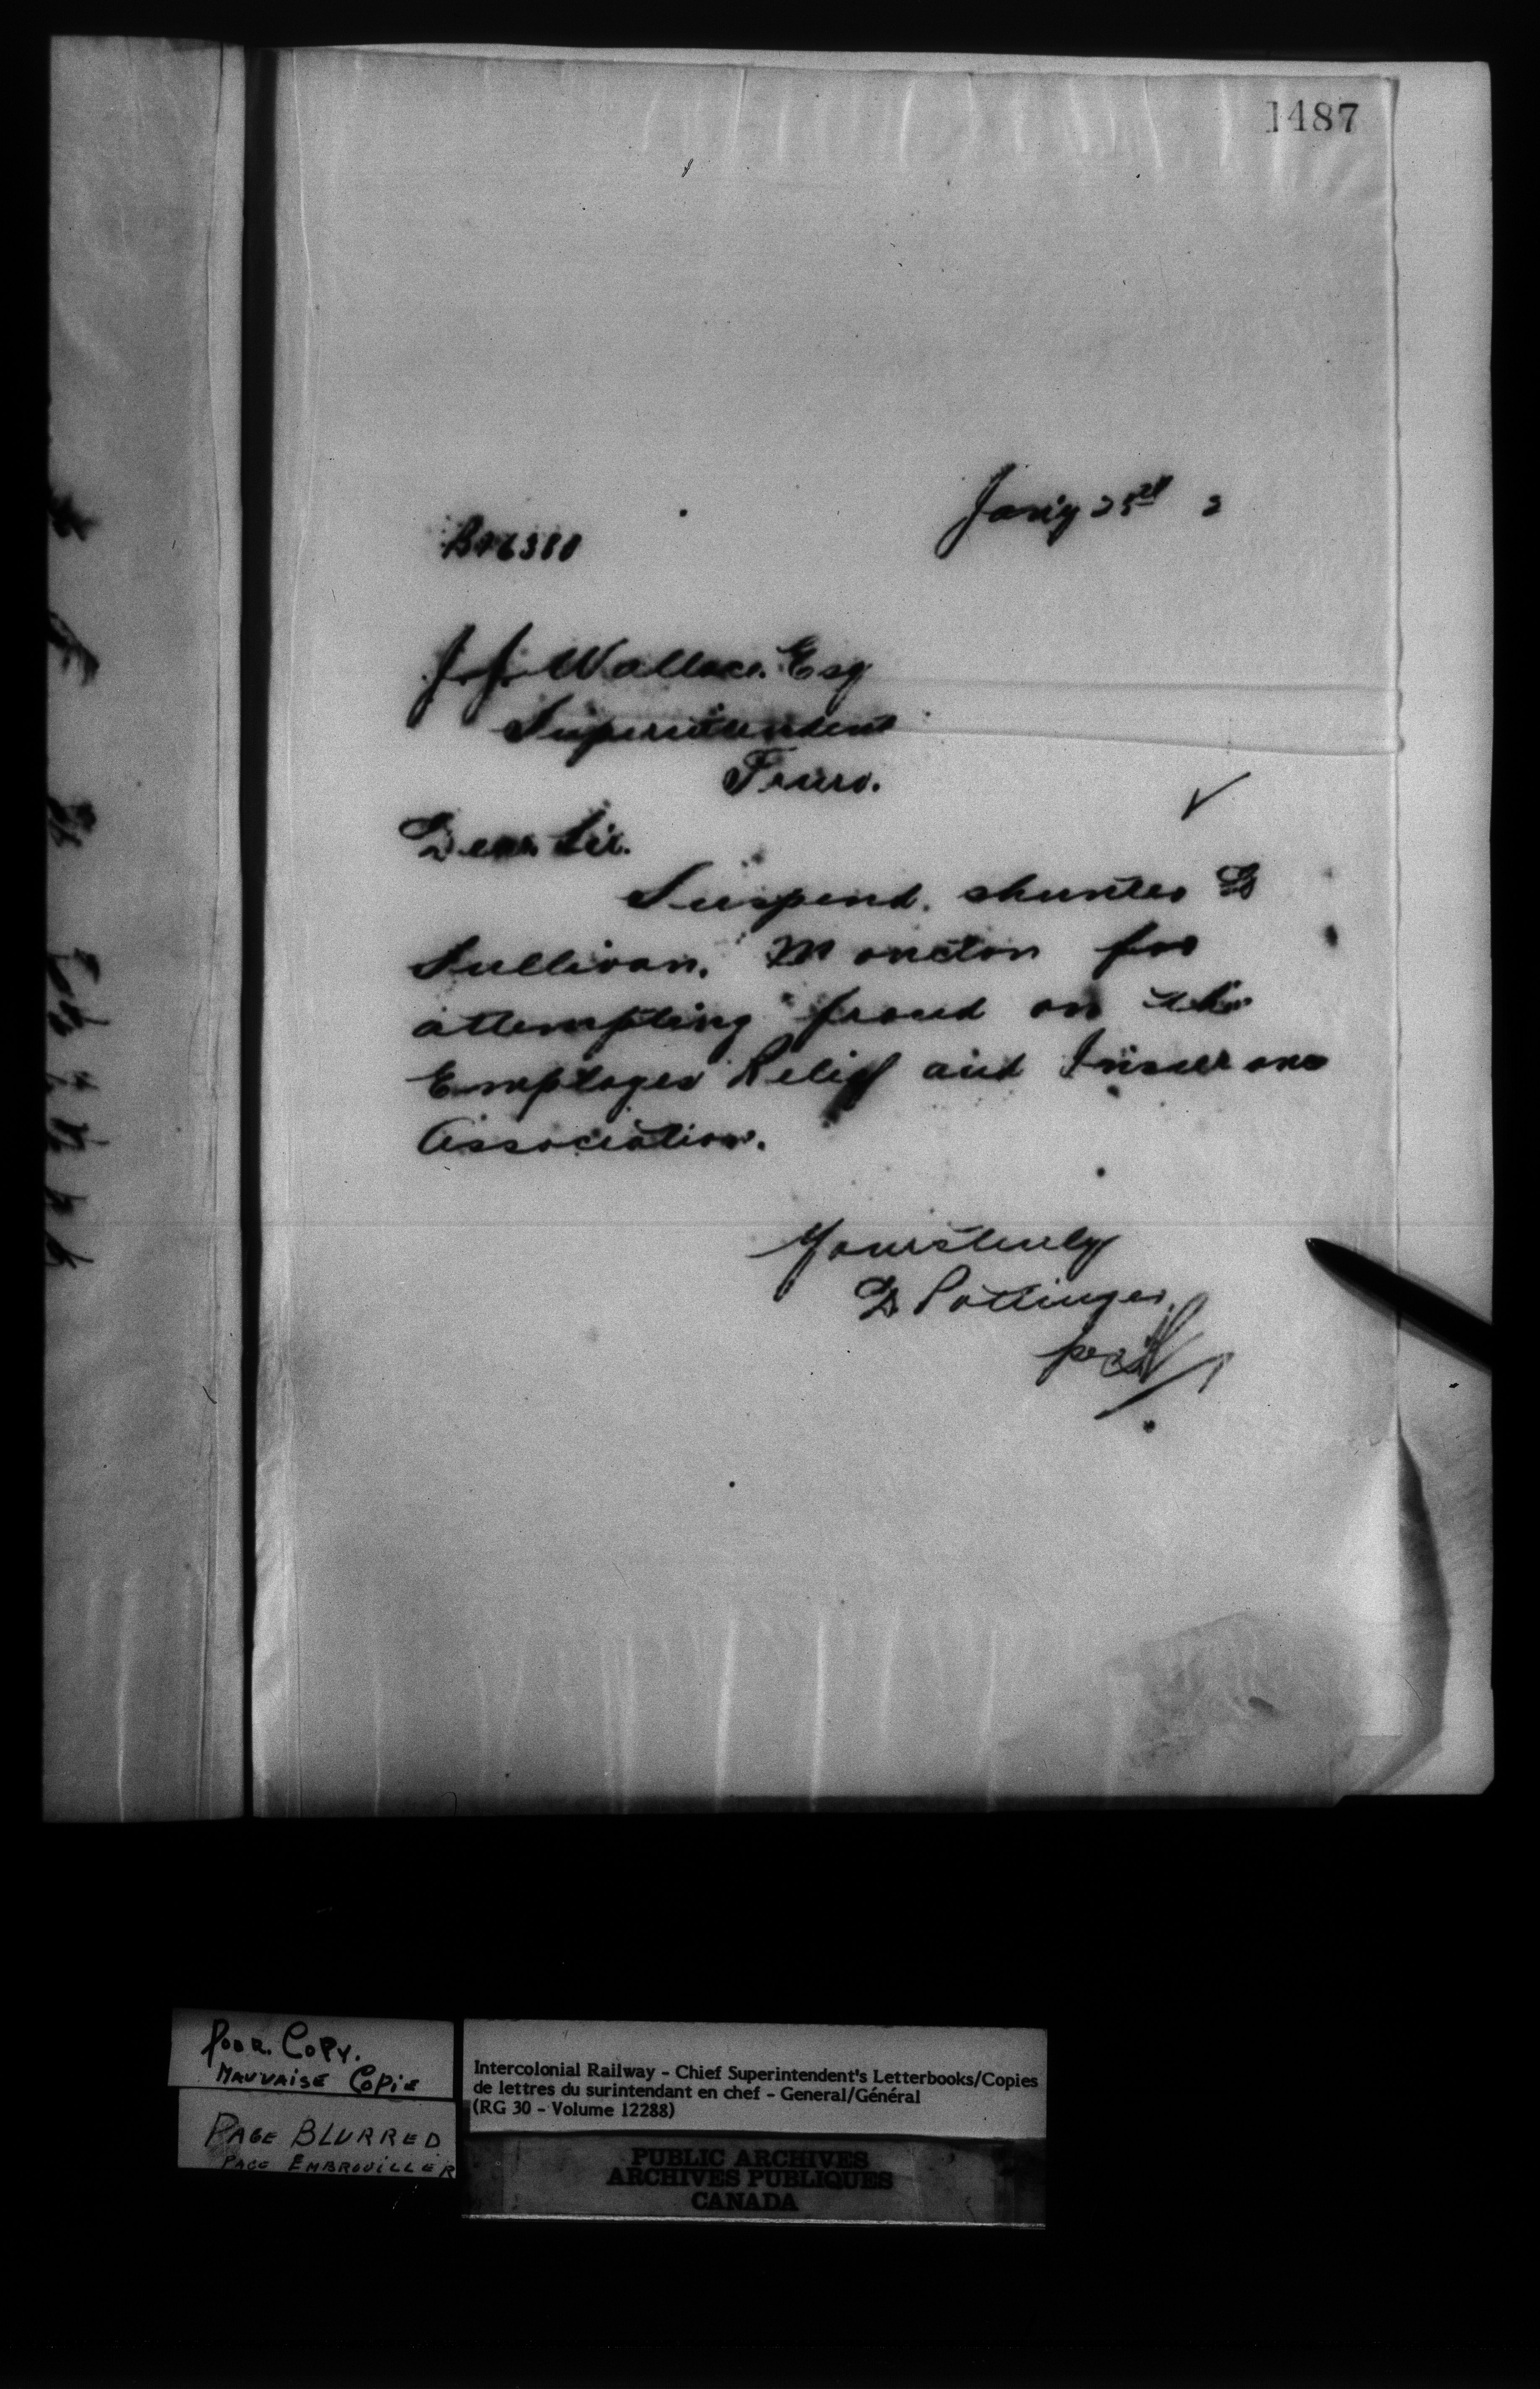 1487
Jany 25th 2
B 26380
J. J. Wallace. Esq
Superintendent
Truro.
Dear Sir.
Suspend. shunter D
Sullivan. Moncton for
attempting fraud on the
Employes Relief and Insurance
Association.
Yours truly
D Pottinger.
per
Poor Copy.
Mauvaise Copie
PAGE BLURRED
PAGE EMBROUILLER
Intercolonial Railway - Chief Superintendent's Letterbooks/Copies
de lettres du surintendant en chef - General/Général
(RG 30 - Volume 12288)
PUBLIC ARCHIVES
ARCHIVES PUBLIQUES
CANADA